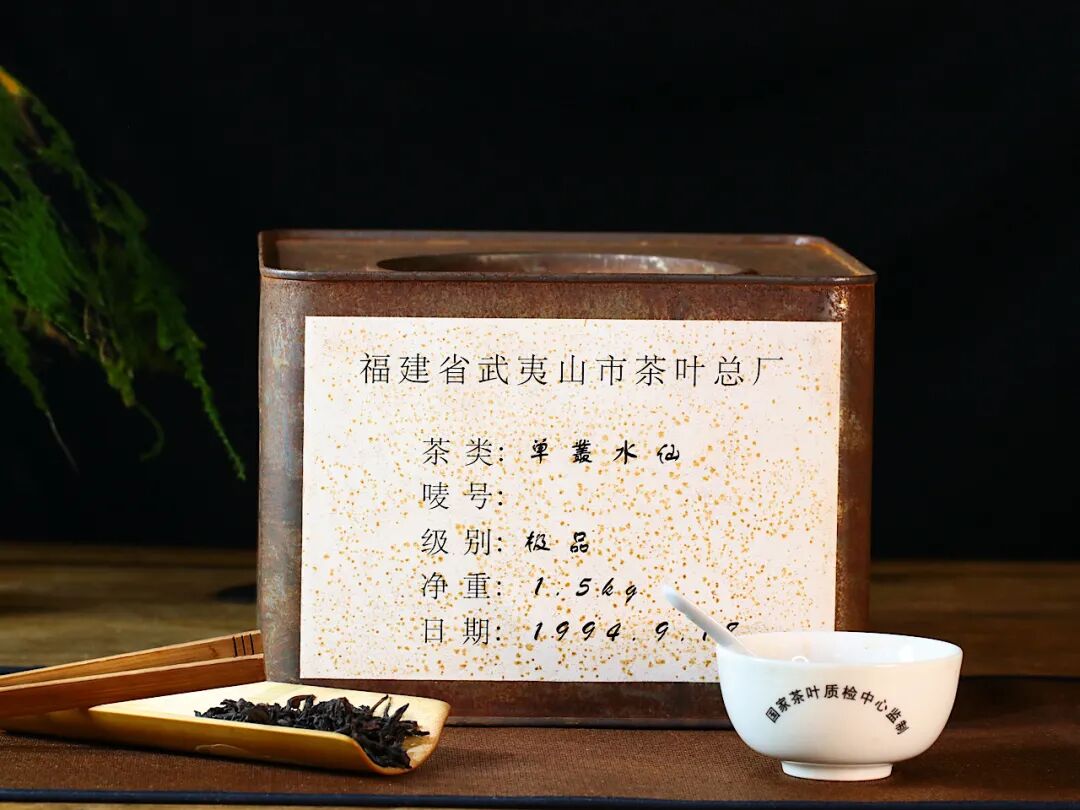 福建省武夷山市茶叶总厂
茶类: 单叢水仙
唛号:
级别: 极品
净重: 1.5kg
日期: 1994.9.
国家茶叶质检中心监制